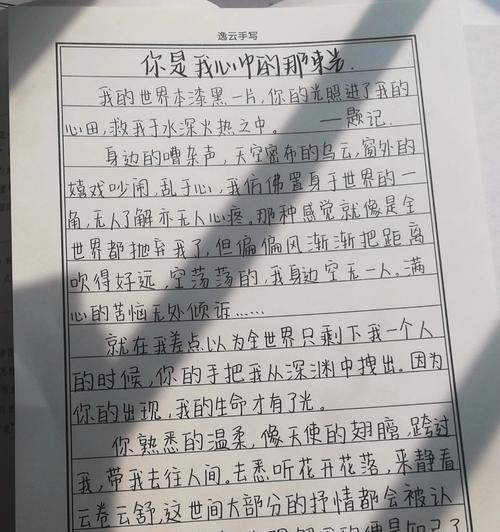 逸云手写
你是我心中的那束光.
我的世界本漆黑一片,你的光照进了我的
心田,救我于水深火热之中。 ——题记.
身边的嘈杂声,天空密布的乌云,窗外的
嬉戏吵闹,乱于心,我仿佛置身于世界的一
角,无人了解亦无人心疼。那种感觉就像是全
世界都抛弃我了,但偏偏风渐渐把距离
吹得好远,空荡荡的,我身边空无一人。满
心的苦恼无处倾诉……
就在我差点以为全世界只剩下我一个人
的时候,你的手把我从深渊中拽出。因为
你的出现,我的生命才有了光。
你熟悉的温柔,像天使的翅膀,跨过
我,带我去往人间。去悉听花开花落,来静看
云卷云舒,这世间大部分的抒情都会被认